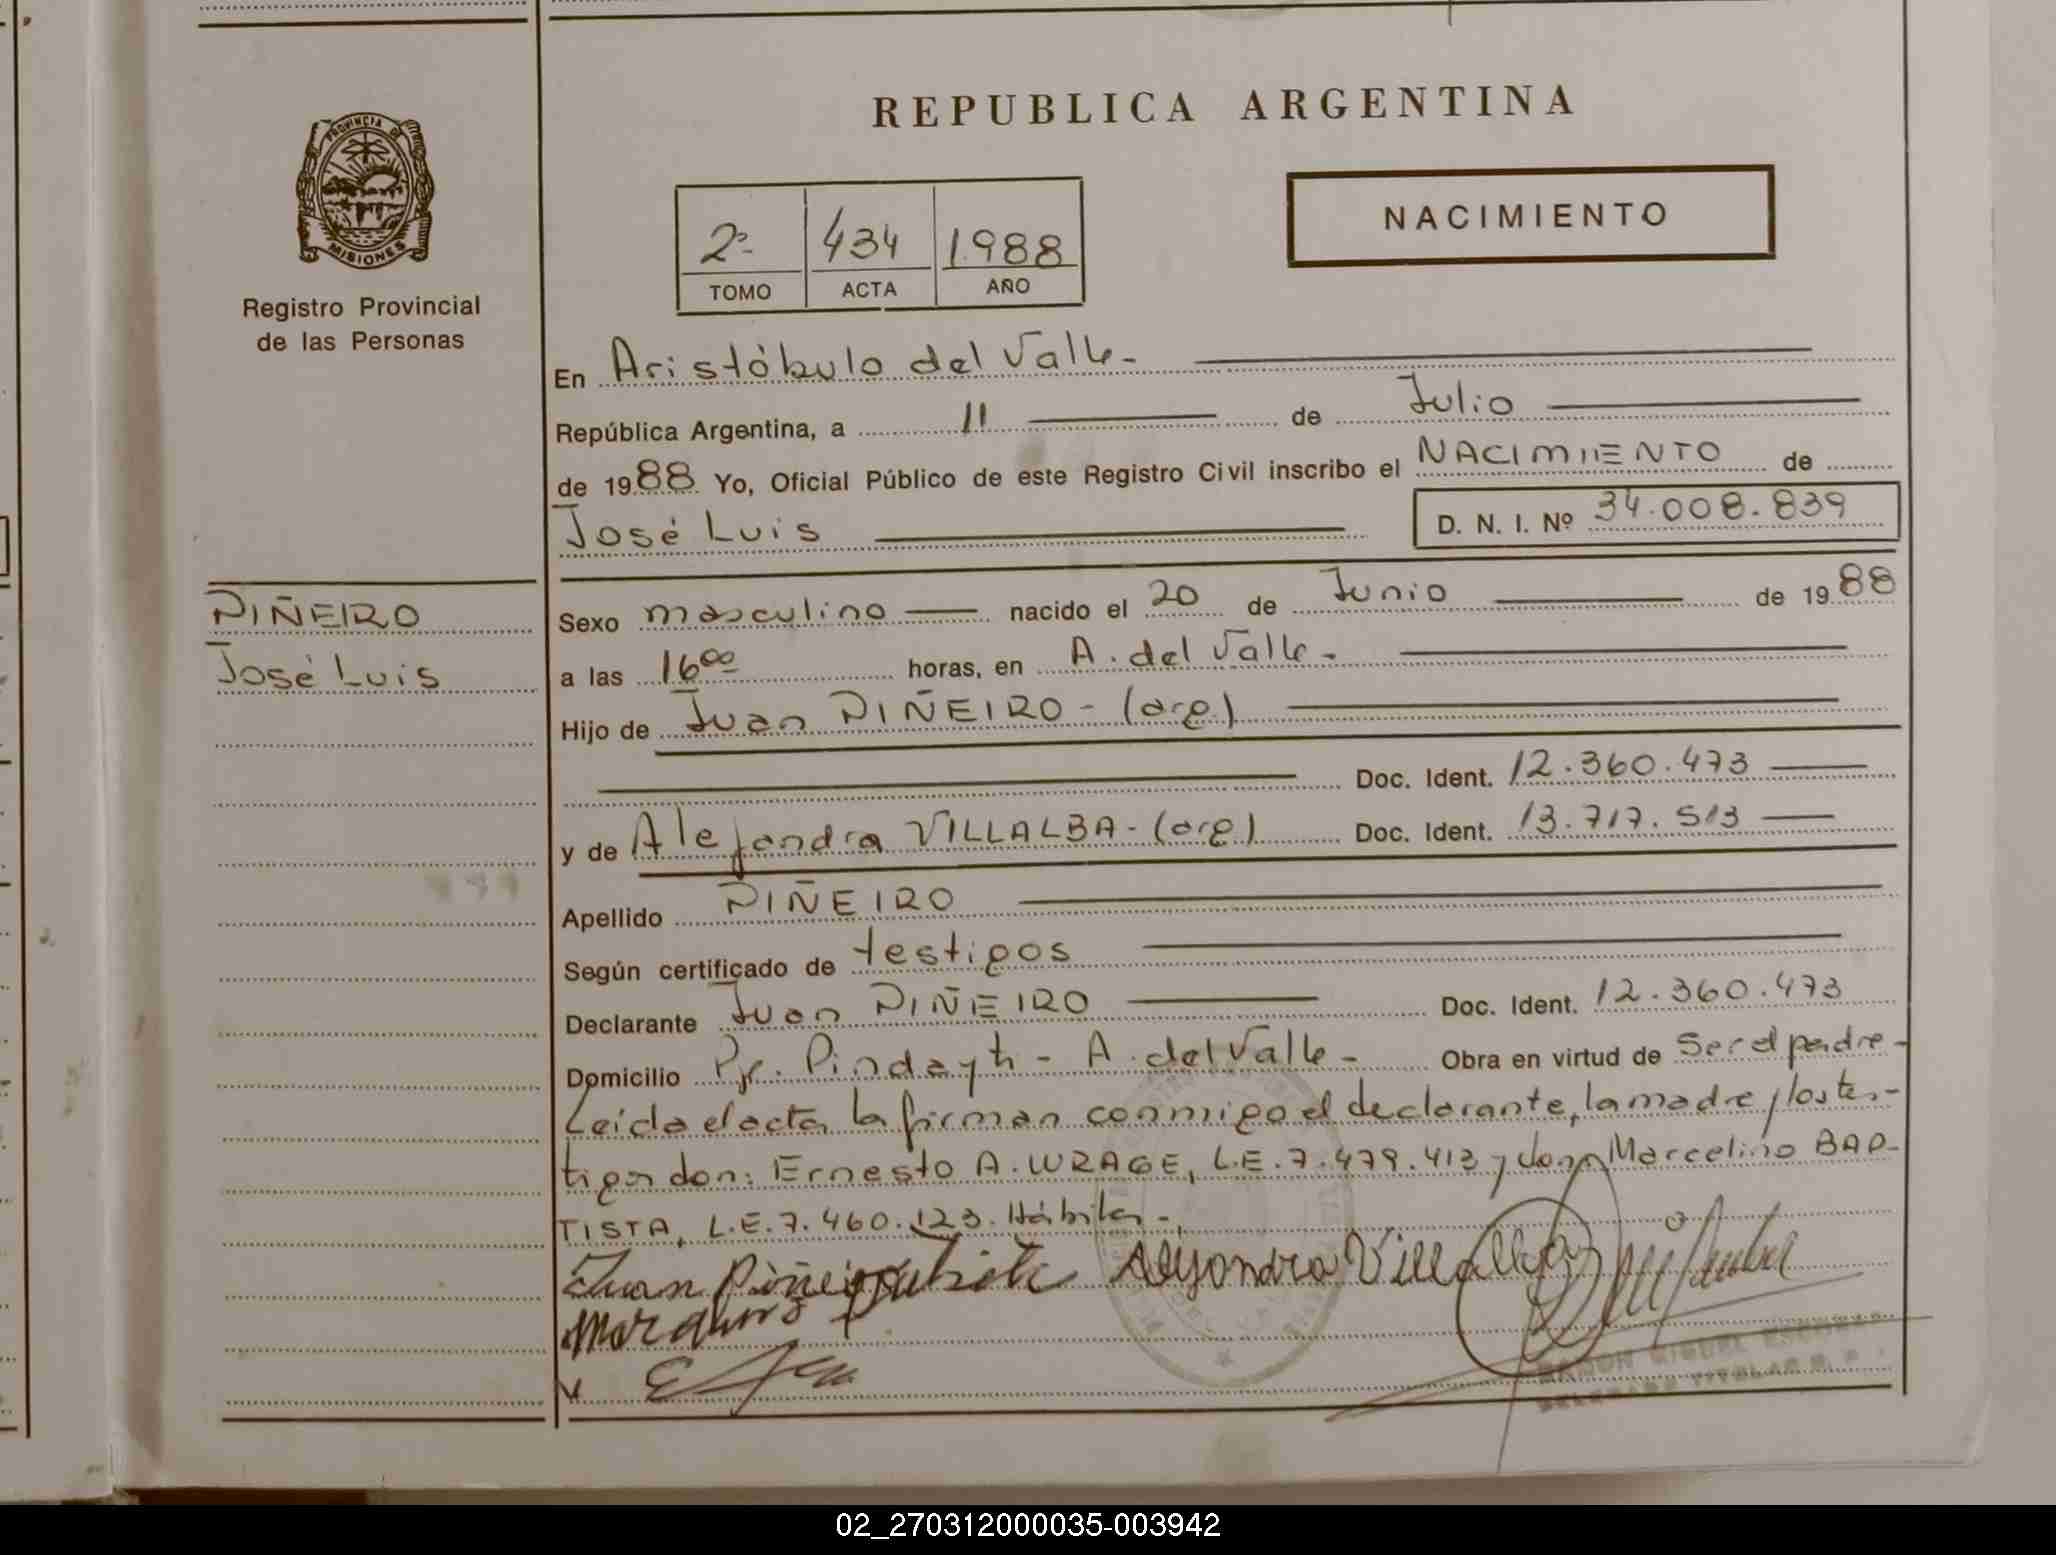 REPUBLICA ARGENTINA
PROVINCIA DE
MISIONES
Registro Provincial
de las Personas
NACIMIENTO
2º 434 1.988
TOMO ACTA AÑO
En Aristóbulo del Valle-
República Argentina, a 11 de Julio
de 1988 Yo, Oficial Público de este Registro Civil inscribo el NACIMIENTO de
José Luis D. N. I. Nº 34.008.839
PIÑEIRO
José Luis
Sexo masculino nacido el 20 de Junio de 1988
a las 16⁰⁰ horas, en A. del Valle-
Hijo de Juan PIÑEIRO - (arg.)
Doc. Ident. 12.360.473
y de Alejandra VILLALBA - (arg) Doc. Ident. 13.717.513
Apellido PIÑEIRO
Según certificado de testigos
Declarante Juan PIÑEIRO Doc. Ident. 12.360.473
Domicilio Pje. Pindayti - A. del Valle- Obra en virtud de Ser el padre-
Leída el acta la firman conmigo el declarante, la madre y los tes-
tigos don: Ernesto A. WRAGE, L.E. 7.479.413 y don Marcelino BAP-
TISTA, L.E. 7.460.123. Hábiles-
Juan Piñeiro Alejandra Villalba
RAMON MIGUEL
DELEGADO TITULAR R. P.
02_270312000035-003942